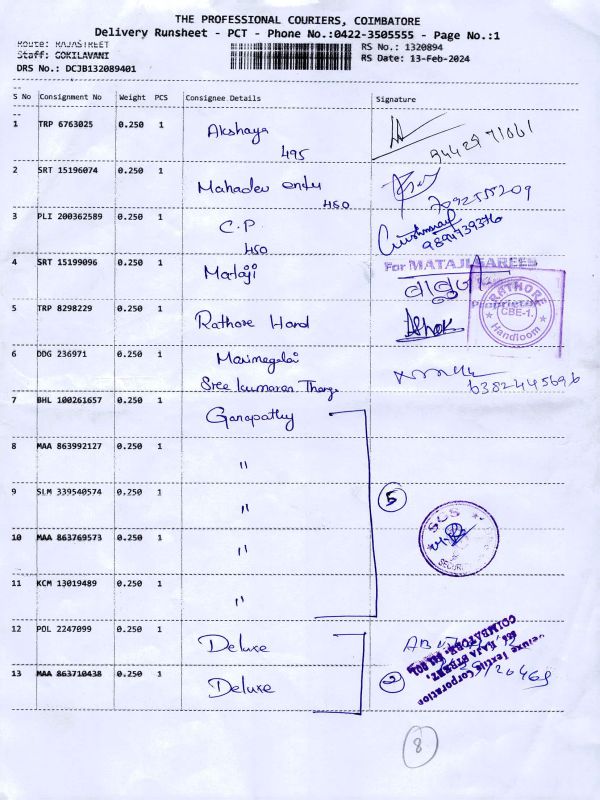 THE PROFESSIONAL COURIERS, COIMBATORE
Delivery Runsheet - PCT - Phone No.:0422-3505555 - Page No.:1
Route: RAJASTREET
RS No.: 1320894
Staff: GOKILAVANI
RS Date: 13-Feb-2024
DRS No.: DCJB132089401
S No Consignment No Weight PCS Consignee Details Signature
1 TRP 6763025 0.250 1 Akshaya
495
2 SRT 15196074 0.250 1 Mahadev
480
3 PLI 200362589 0.250 1 C.P
480
9894739376
For MATAJI SAREES
4 SRT 15199096 0.250 1 Mataji
Proprietor
5 TRP 8298229 0.250 1 Rathore Hand
Ashok
RATHORE
CBE-1.
Handloom
6 DDG 236971 0.250 1
Sree Kumaran
6382445696
7 BHL 100261657 0.250 1 Ganapathy
8 MAA 863992127 0.250 1 "
9 SLM 339540574 0.250 1 "
5
10 MAA 863769573 0.250 1 "
11 KCM 13019489 0.250 1 "
12 POL 2247099 0.250 1 Deluxe
Deluxe Textile Corporation
RAJA STREET,
COIMBATORE
13 MAA 863710438 0.250 1 Deluxe
2
8